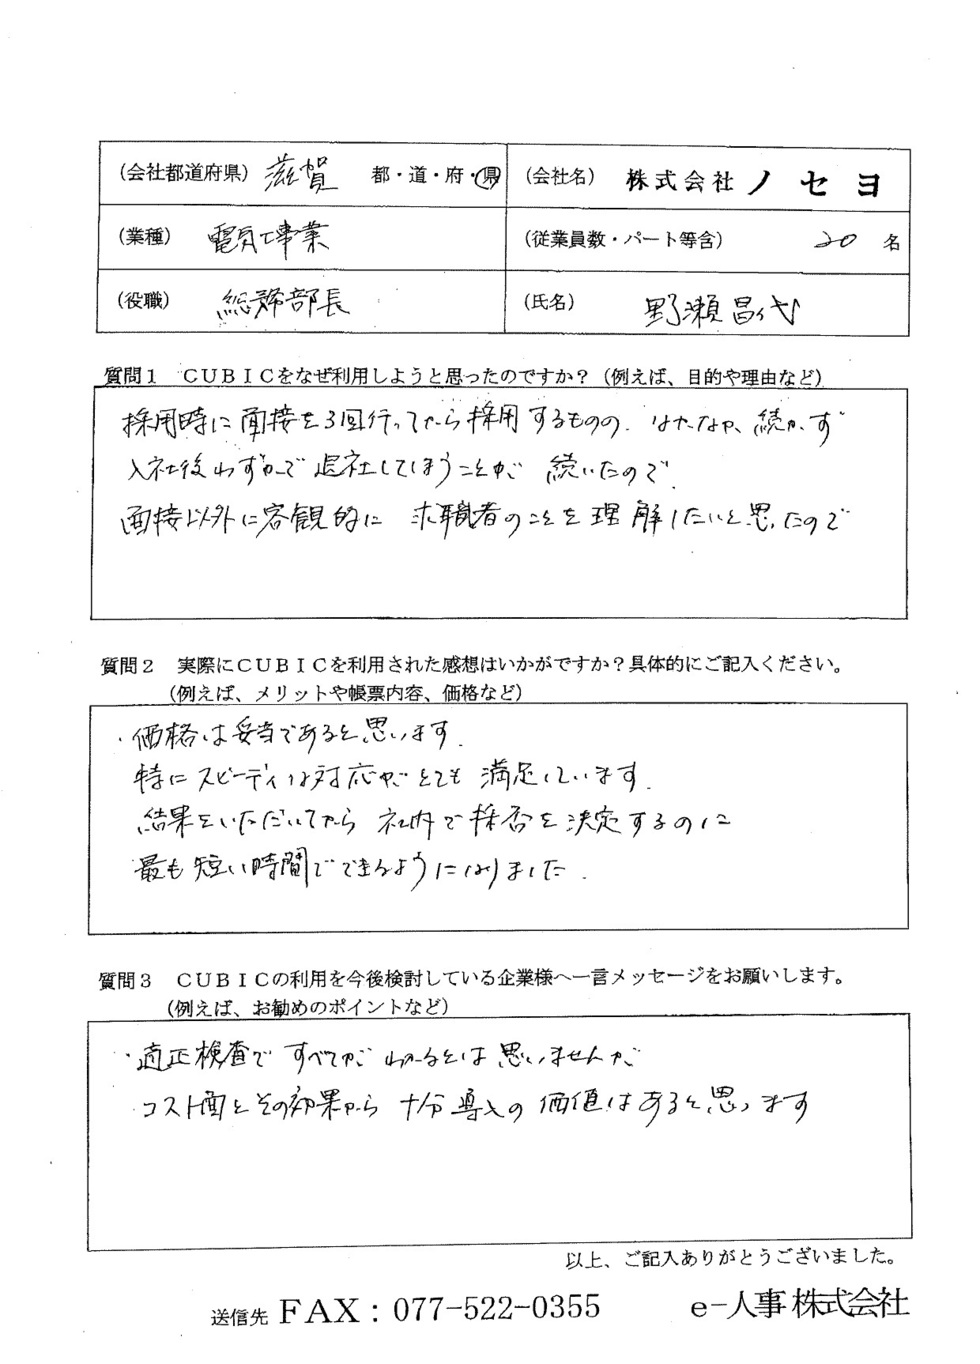 (会社都道府県) 滋賀 都・道・府・県
(会社名) 株式会社ノセヨ
(業種) 電気工事業
(従業員数・パート等含) 20 名
(役職) 総務部長
(氏名) 野瀬昌代
質問1 CUBICをなぜ利用しようと思ったのですか？(例えば、目的や理由など)
採用時に面接を3回行ってから採用するものの、なかなか、続かず
入社後わずかで退社してしまうことが 続いたので
面接以外に客観的に 求職者のことを理解したいと思ったので
質問2 実際にCUBICを利用された感想はいかがですか？具体的にご記入ください。
(例えば、メリットや帳票内容、価格など)
・価格は妥当であると思います.
特にスピーディな対応がとても 満足しています.
結果をいただいてから 社内で採否を決定するのに
最も短い時間でできるようになりました.
質問3 CUBICの利用を今後検討している企業様へ一言メッセージをお願いします。
(例えば、お勧めのポイントなど)
・適正検査で すべてが わかるとは思いませんが
コスト面とその効果から 十分導入の 価値はあると思います
以上、ご記入ありがとうございました。
送信先 FAX：077-522-0355 e-人事株式会社